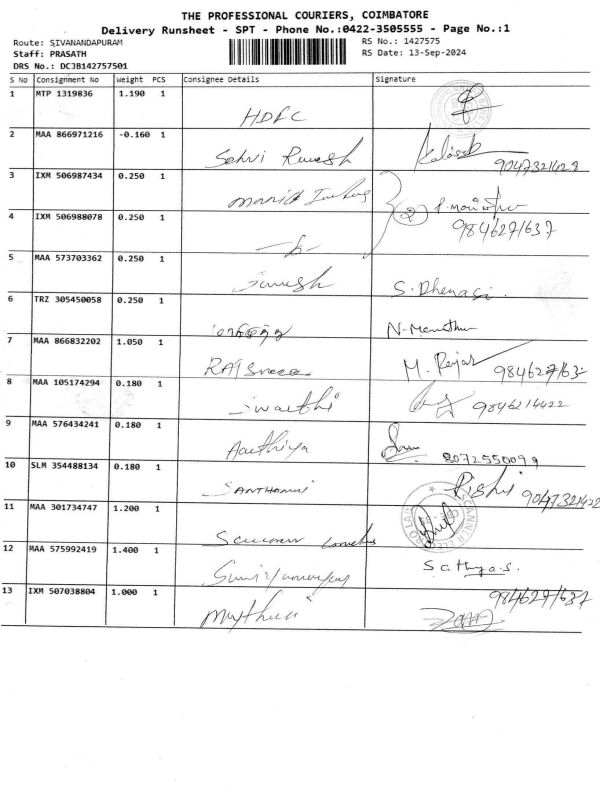 THE PROFESSIONAL COURIERS, COIMBATORE
Delivery Runsheet - SPT - Phone No.:0422-3505555 - Page No.:1
Route: SIVANANDAPURAM
Staff: PRASATH
DRS No.: DCJB142757501
RS No.: 1427575
RS Date: 13-Sep-2024
S No Consignment No Weight PCS Consignee Details Signature
1 MTP 1319836 1.190 1 HDFC
2 MAA 866971216 -0.160 1
3 IXM 506987434 0.250 1
4 IXM 506988078 0.250 1 9846271637
5 MAA 573703362 0.250 1 S. Dhenasi.
6 TRZ 305450058 0.250 1
7 MAA 866832202 1.050 1 RAJ M.
8 MAA 105174294 0.180 1 Swaethi 9846214422
9 MAA 576434241 0.180 1 Aauthiya 8072550099
10 SLM 354488134 0.180 1 Rishi 9047321422
11 MAA 301734747 1.200 1
12 MAA 575992419 1.400 1 Sathya.S.
13 IXM 507038804 1.000 1 Mythuni 9846271637